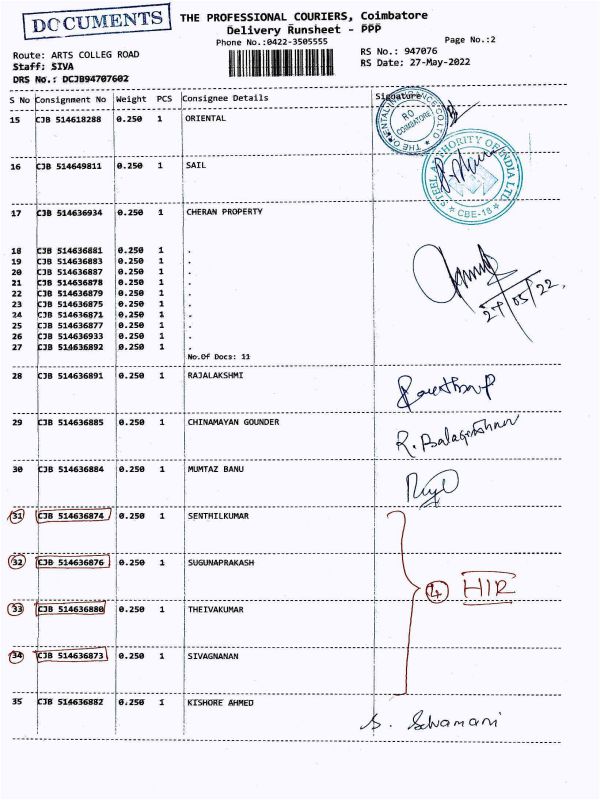 DOCUMENTS
THE PROFESSIONAL COURIERS, Coimbatore
Delivery Runsheet - PPP
Phone No.:0422-3505555
Page No.:2
Route: ARTS COLLEG ROAD
RS No.: 947076
Staff: SIVA
RS Date: 27-May-2022
DRS No.: DCJB94707602
S No Consignment No Weight PCS Consignee Details Signature
15 CJB 514618288 0.250 1 ORIENTAL
THE ORIENTAL INSURANCE CO LTD
RO
COIMBATORE
16 CJB 514649811 0.250 1 SAIL
STEEL AUTHORITY OF INDIA LTD.
* CBE-18 *
17 CJB 514636934 0.250 1 CHERAN PROPERTY
18 CJB 514636881 0.250 1 .
19 CJB 514636883 0.250 1 .
20 CJB 514636887 0.250 1 .
21 CJB 514636878 0.250 1 .
22 CJB 514636879 0.250 1 .
23 CJB 514636875 0.250 1 .
24 CJB 514636871 0.250 1 .
25 CJB 514636877 0.250 1 .
26 CJB 514636933 0.250 1 .
27 CJB 514636892 0.250 1 .
27/05/22.
No.Of Docs: 11
28 CJB 514636891 0.250 1 RAJALAKSHMI
29 CJB 514636885 0.250 1 CHINAMAYAN GOUNDER
30 CJB 514636884 0.250 1 MUMTAZ BANU
31 CJB 514636874 0.250 1 SENTHILKUMAR
32 CJB 514636876 0.250 1 SUGUNAPRAKASH
4 HIR
33 CJB 514636880 0.250 1 THEIVAKUMAR
34 CJB 514636873 0.250 1 SIVAGNANAN
35 CJB 514636882 0.250 1 KISHORE AHMED